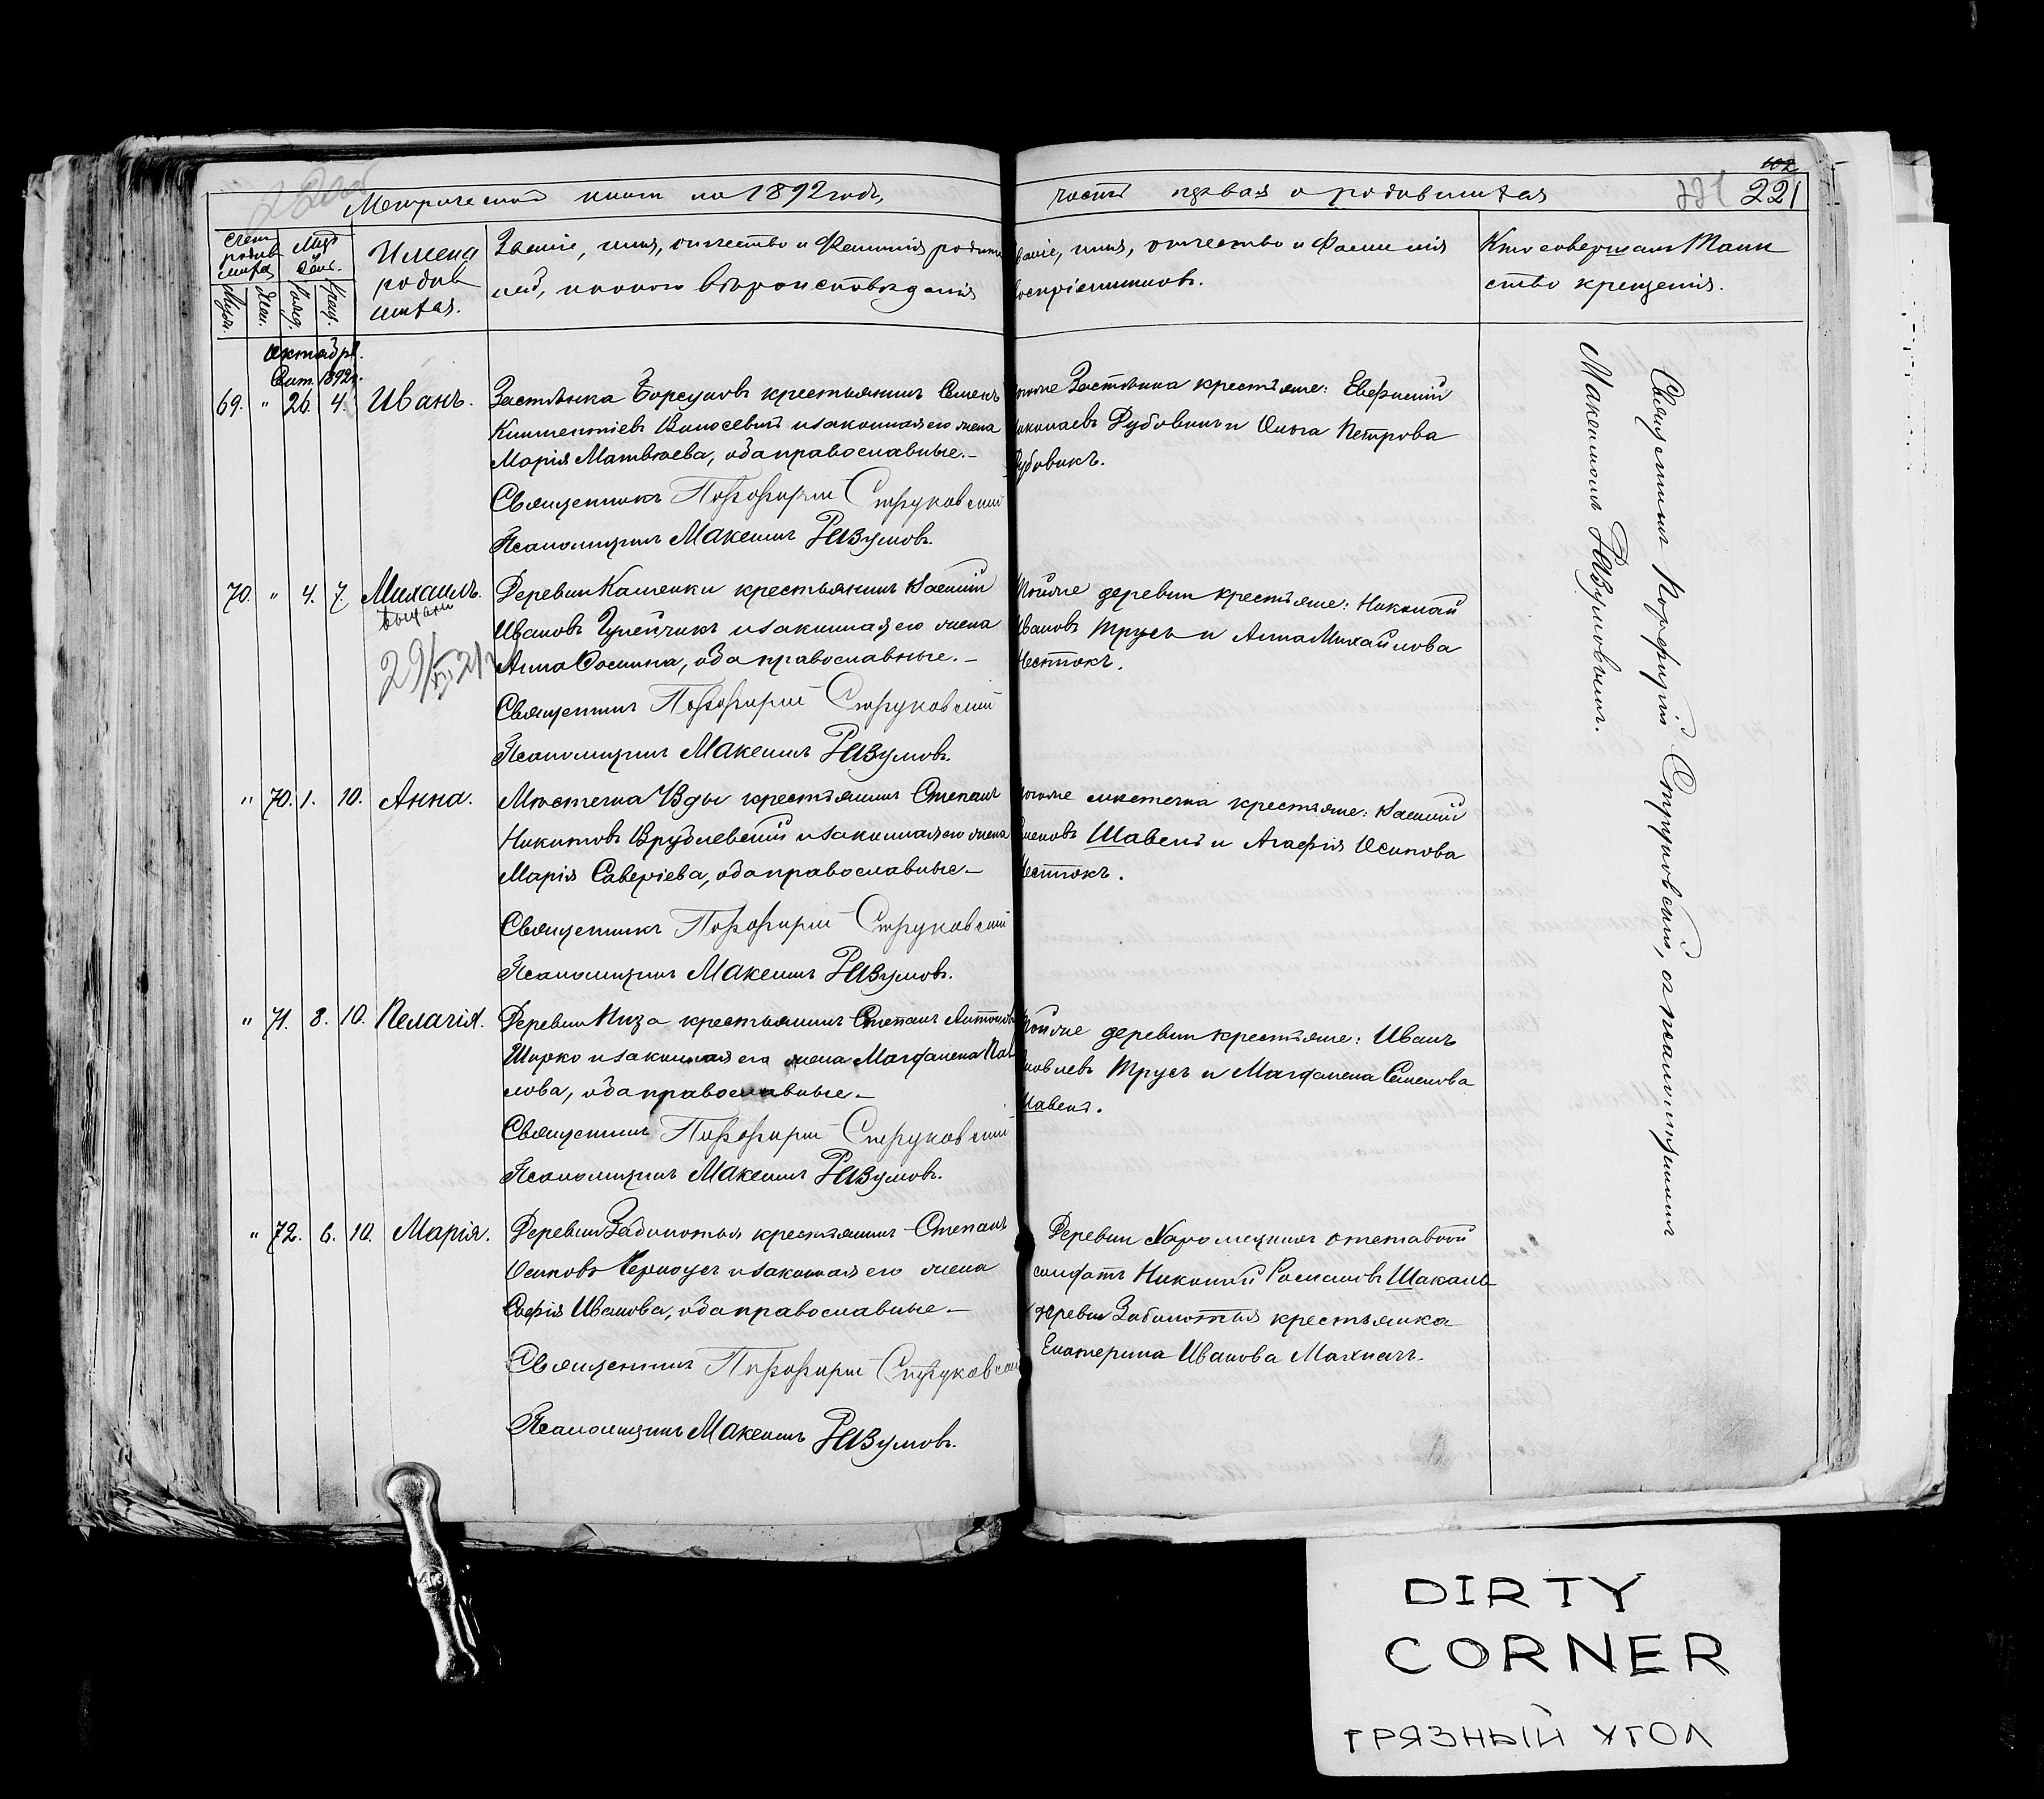 Метрической книги на 1892 годъ,
часть первая о родившихся
221
Счет родив шихся
Муж.
Жен.
Мцъ и день.
Рожд.
Крещ.
Имена
родив
шихся.
Званіе, имя, отчество и Фамилія родите
лей, и какого вѣроисповѣданія
Званіе, имя, отчество и Фамилія
воспріемниковъ.
Кто совершалъ Таин
ство крещенія.
Октябрь.
Сент. 1892 г.
69. " 26. 4. Иванъ.
Застѣнка Борсуковъ крестьянинъ Семенъ
Климентіевъ Волосевичъ и законная его жена
Марія Матвѣева, оба православные. –
Священникъ Порфирій Струковскій
Псаломщикъ Максимъ Разумовъ.
того же Застѣнка крестьяне: Евфимій
Николаевъ Дубовикъ и Ольга Петрова
Дубовикъ.
70. " 4. 7. Михаилъ.
29/
Деревни Каменки крестьянинъ Василій
Ивановъ Гулейчикъ и законная его жена
Анна Фомина, оба православные. –
Священникъ Порфирій Струковскій
Псаломщикъ Максимъ Разумовъ.
той же деревни крестьяне: Николай
Ивановъ Трусъ и Анна Михайлова
Шестокъ.
" 70. 1. 10. Анна.
Мѣстечка Узды крестьянинъ Степанъ
Никитовъ Врублевскій и законная его жена
Марія Саверіева, оба православные –
Священникъ Порфирій Струковскій
Псаломщикъ Максимъ Разумовъ.
того же мѣстечка крестьяне: Василій
Семеновъ Шавель и Агафія Осипова
Шестокъ.
" 71. 8. 10. Пелагія.
Деревни Низа крестьянинъ Степанъ Антоновъ
Ширко и законная его жена Магдалена Пав
лова, оба православные –
Священникъ Порфирій Струковскій
Псаломщикъ Максимъ Разумовъ.
той же деревни крестьяне: Иванъ
Яковлевъ Трусъ и Магдалена Семенова
Шавель.
" 72. 6. 10. Марія.
Деревни Заболотья крестьянинъ Степанъ
Осиповъ Черноусъ и законная его жена
Софія Иванова, оба православные –
Священникъ Порфирій Струковскій
Псаломщикъ Максимъ Разумовъ.
Деревни отставной
солдатъ Николай Романовъ Шакаль
и деревни Заболотья крестьянка
Екатерина Иванова Махначъ.
Священникъ Порфирій Струковскій, съ псаломщикомъ
Максимомъ Разумовымъ.
DIRTY
CORNER
ГРЯЗНЫЙ УГОЛ